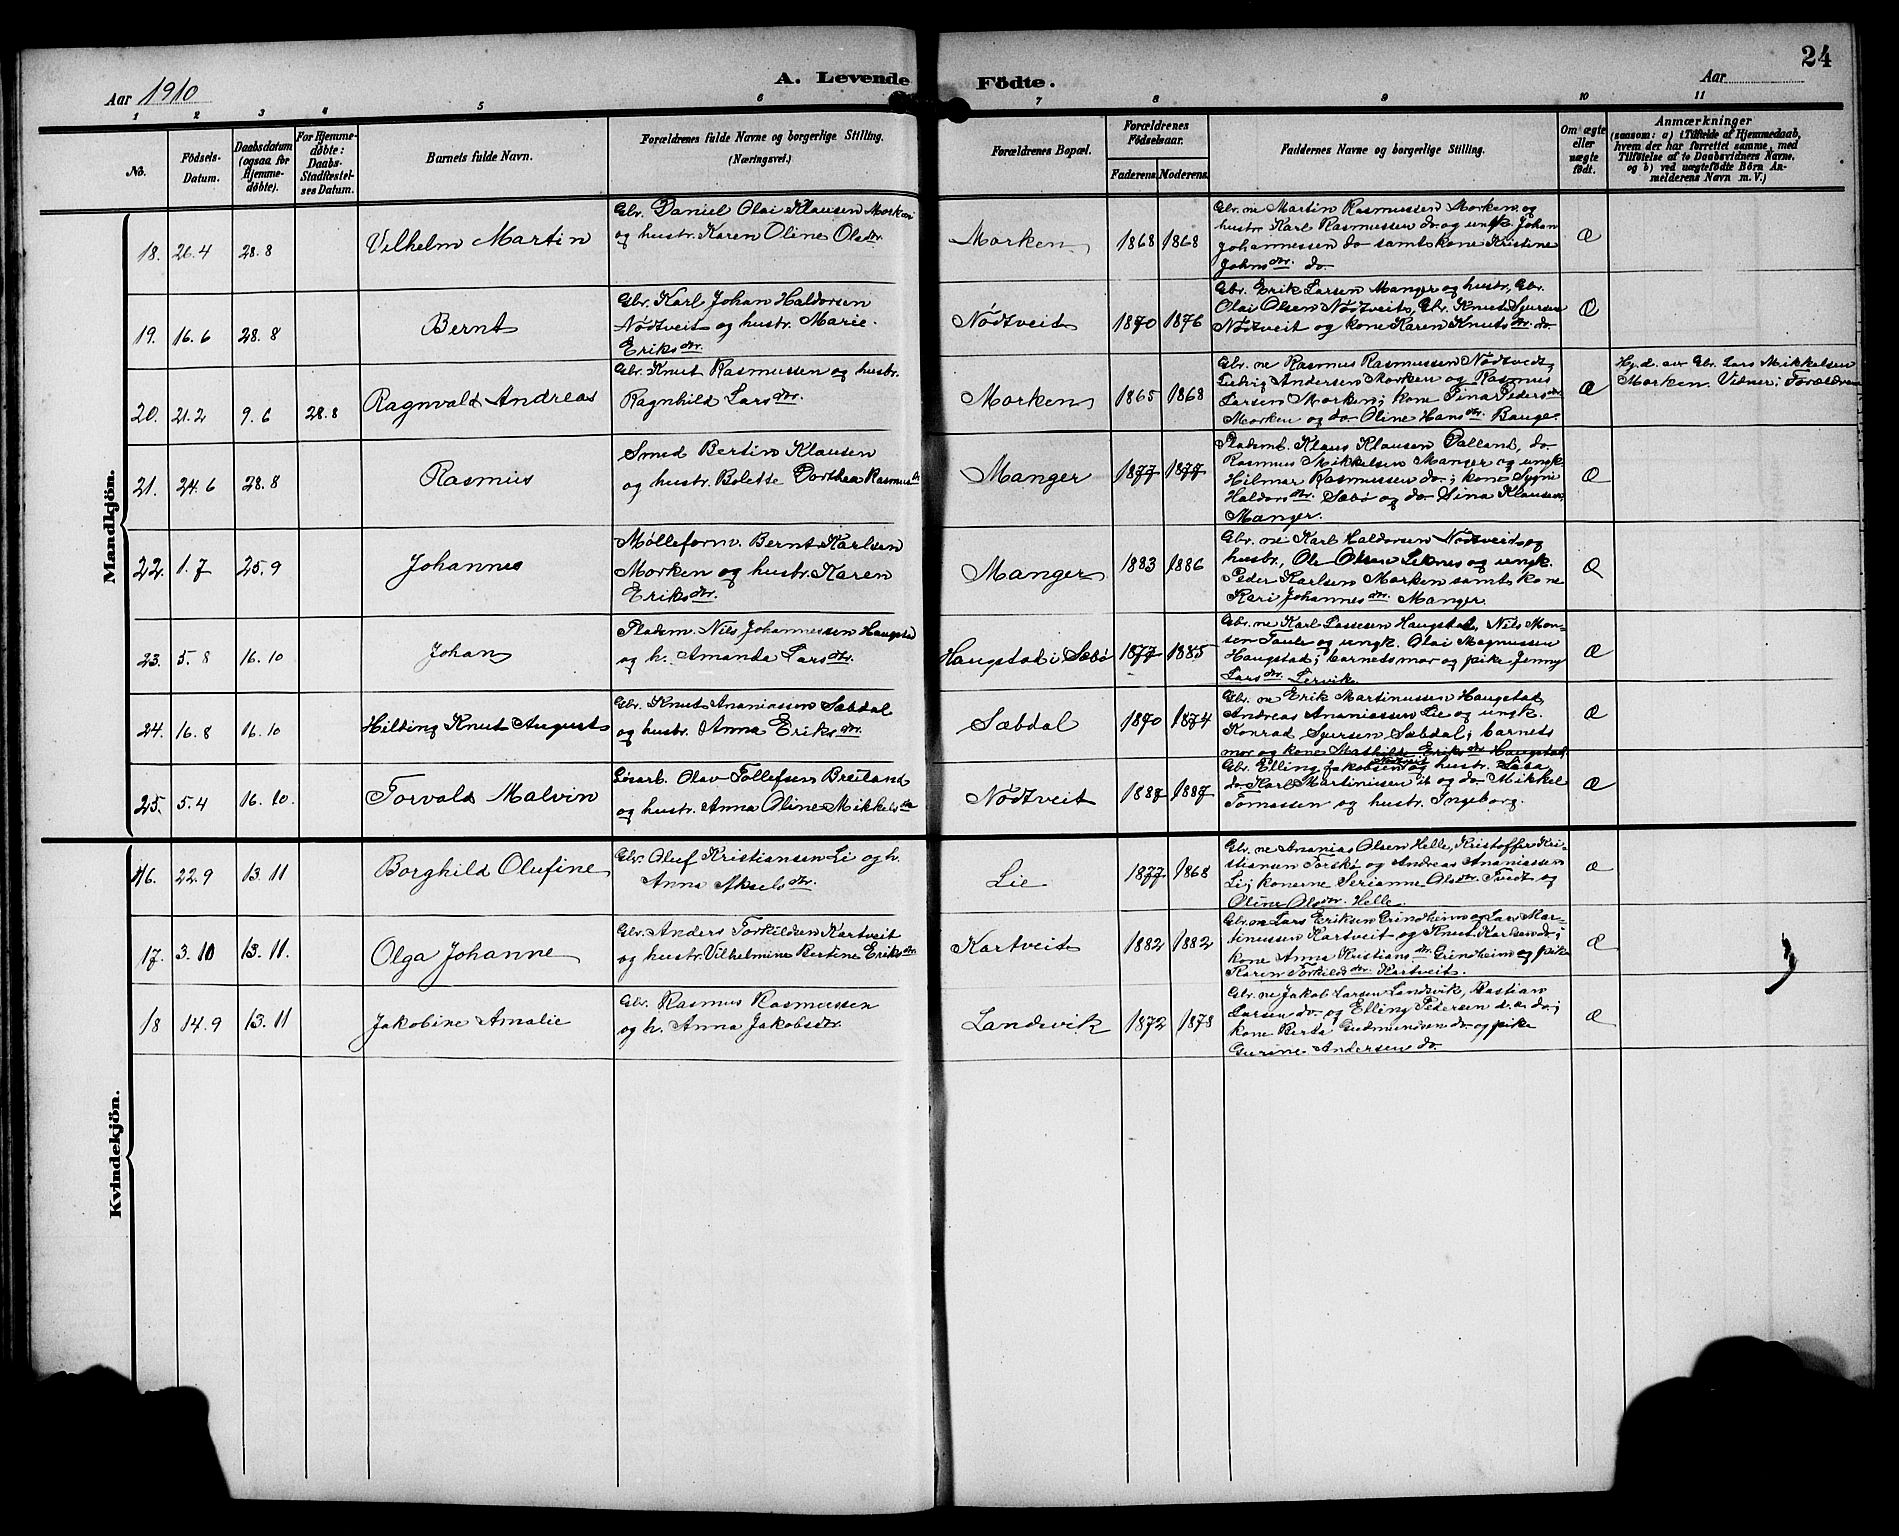 24
A. Levende Födte.
Aar 1910
Aar
1 2 3 4 5 6 7 8 9 10 11
No.
Födsels-
Datum.
Daabsdatum
(ogsaa for
Hjemme-
döbte).
For Hjemme-
döbte:
Daabs-
Stadfæstel-
ses Datum.
Barnets fulde Navn.
Forældrenes fulde Navne og borgerlige Stilling.
(Næringsvei.)
Forældrenes Bopæl.
Forældrenes
Födselsaar.
Faderens. Moderens.
Faddernes Navne og borgerlige Stilling.
Om ægte
eller
uægte
födt.
Anmærkninger
(saasom: a) i Tilfælde af Hjemmedaab,
hvem der har forrettet samme, med
Tilföielse af to Daabsvidners Navne,
og b) ved uægtefödte Börn An-
melderens Navn m. V.)
Mandkjön.
18. 26.4 28.8 Vilhelm Martin
Gbr. Daniel Olai Klausen Morken
og hustr. Karen Oline Olsdtr.
Morken 1868 1868
Gbr.ne Martin Rasmussen Morken og
hustr. Karl Rasmussen do. og ungk. Johan
Johannessen do samt kone Kristine
Johnsdtr. do.
Æ
19. 16.6 28.8 Bernt
Gbr. Karl Johan Haldorsen
Nödtveit og hustr. Marie
Eriksdtr.
Nödtveit 1870 1876
Gbr. Erik Larsen Manger og hustr., Gbr.
Olai Olsen Nödtveit, Gbr. Knut Sjursen
Nödtveit og kone Karen Knutsdtr. do
Æ
20. 21.2 9.6 28.8 Ragnvald Andreas
Gbr. Knut Rasmussen og hustr.
Ragnhild Larsdtr.
Morken 1865 1868
Gbr.ne Rasmus Rasmussen Nödtvedt,
Ludvig Andersen Morken og Rasmus
Larsen Morken; kone Sina Pedersdtr.
Morken og do. Oline Hansdtr. Bauge.
Æ
Hj.d. av Gbr. Lars Mikkelsen
Morken. Vidner: Forældrene
21. 24.6 28.8 Rasmus
Smed Bertin Klausen
og hustr. Bolette Dorthea Rasmusdtr.
Manger 1877 1877
Pladsm. Klaus Klausen Dalland, do
Rasmus Mikkelsen Manger og ungk.
Hilmar Rasmussen do; kone Signe
Haldorsdtr. Sæbö og do Sina Klausen,
Manger.
Æ
22. 1.7 25.9 Johannes
Mölleform. Bernt Karlsen
Morken og hustr. Karen
Eriksdtr.
Manger 1883 1886
Gbr.ne Karl Haldorsen Nödtveit og
hustr., Ole Olsen Leknes og ungk.
Peder Karlsen Morken samt kone
Kari Johannesdtr. Manger.
Æ
23. 5.8 16.10 Johan
Pladsm. Nils Johannessen Haugstad
og h. Amanda Larsdtr.
Haugstad i Sæbö 1877 1885
Gbr.ne Karl Lassesen Haugstad, Nils Mon-
sen Taule og ungk. Olai Magnussen
Haugstad; barnets mor og pike Jenny
Larsdtr. Lervik.
Æ
24. 16.8 16.10 Hilding Knut August
Gbr. Knut Ananiassen Sæbdal
og hustr. Anna Eriksdtr.
Sæbdal 1870 1874
Gbr.ne Erik Martinussen Haugstad,
Andreas Ananiassen Lie og ungk.
Konrad Sjursen Sæbdal; barnets
mor og kone Mathilde Eriksdtr. Haugstad
Æ
25. 5.4 16.10. Torvald Malvin
Lösarb. Olav Tollefsen Breiland
og hustr. Anna Oline Mikkelsdtr
Nödtveit 1887 1887
Gbr. Elling Jakobsen Nödtveit og hustr.
do Karl Martinussen do og do. Mikkel
Tomassen og hustr. Ingeborg.
Æ
Kvindekjön.
16. 22.9 13.11 Borghild Olufine
Gbr. Oluf Kristiansen Li og h.
Anna Akselsdtr.
Lie 1877 1868
Gbr.ne Ananias Olsen Helle, Kristoffer Kri-
stiansen Toskö og Andreas Ananiassen
Li; konerne Serianne Olsdtr. Tvedt og
Oline Olsdtr. Helle
Æ
17. 3.10 13.11. Olga Johanne
Gbr. Anders Torkildsen Kartveit
og hustr. Vilhelmine Bertine Eriksdtr.
Kartveit 1882 1882
Gbr.ne Lars Eriksen Grindheim og Lars Mar-
tinussen Kartveit og Knut Karlsen do.;
kone Anna Kristiansdtr. Grindheim og pike
Karen Torkildsdtr. Kartveit.
Æ
18 14.9 13.11 Jakobine Amalie
Gbr. Rasmus Rasmussen
og h. Anna Jakobsdtr.
Landsvik 1872 1878
Gbr.ne Jakob Larsen Landsvik, Bastian
Larsen do. og Elling Pedersen s.a. do.;
kone Berta Gudmundsen do. og pike
Gurine Andersen do.
Æ